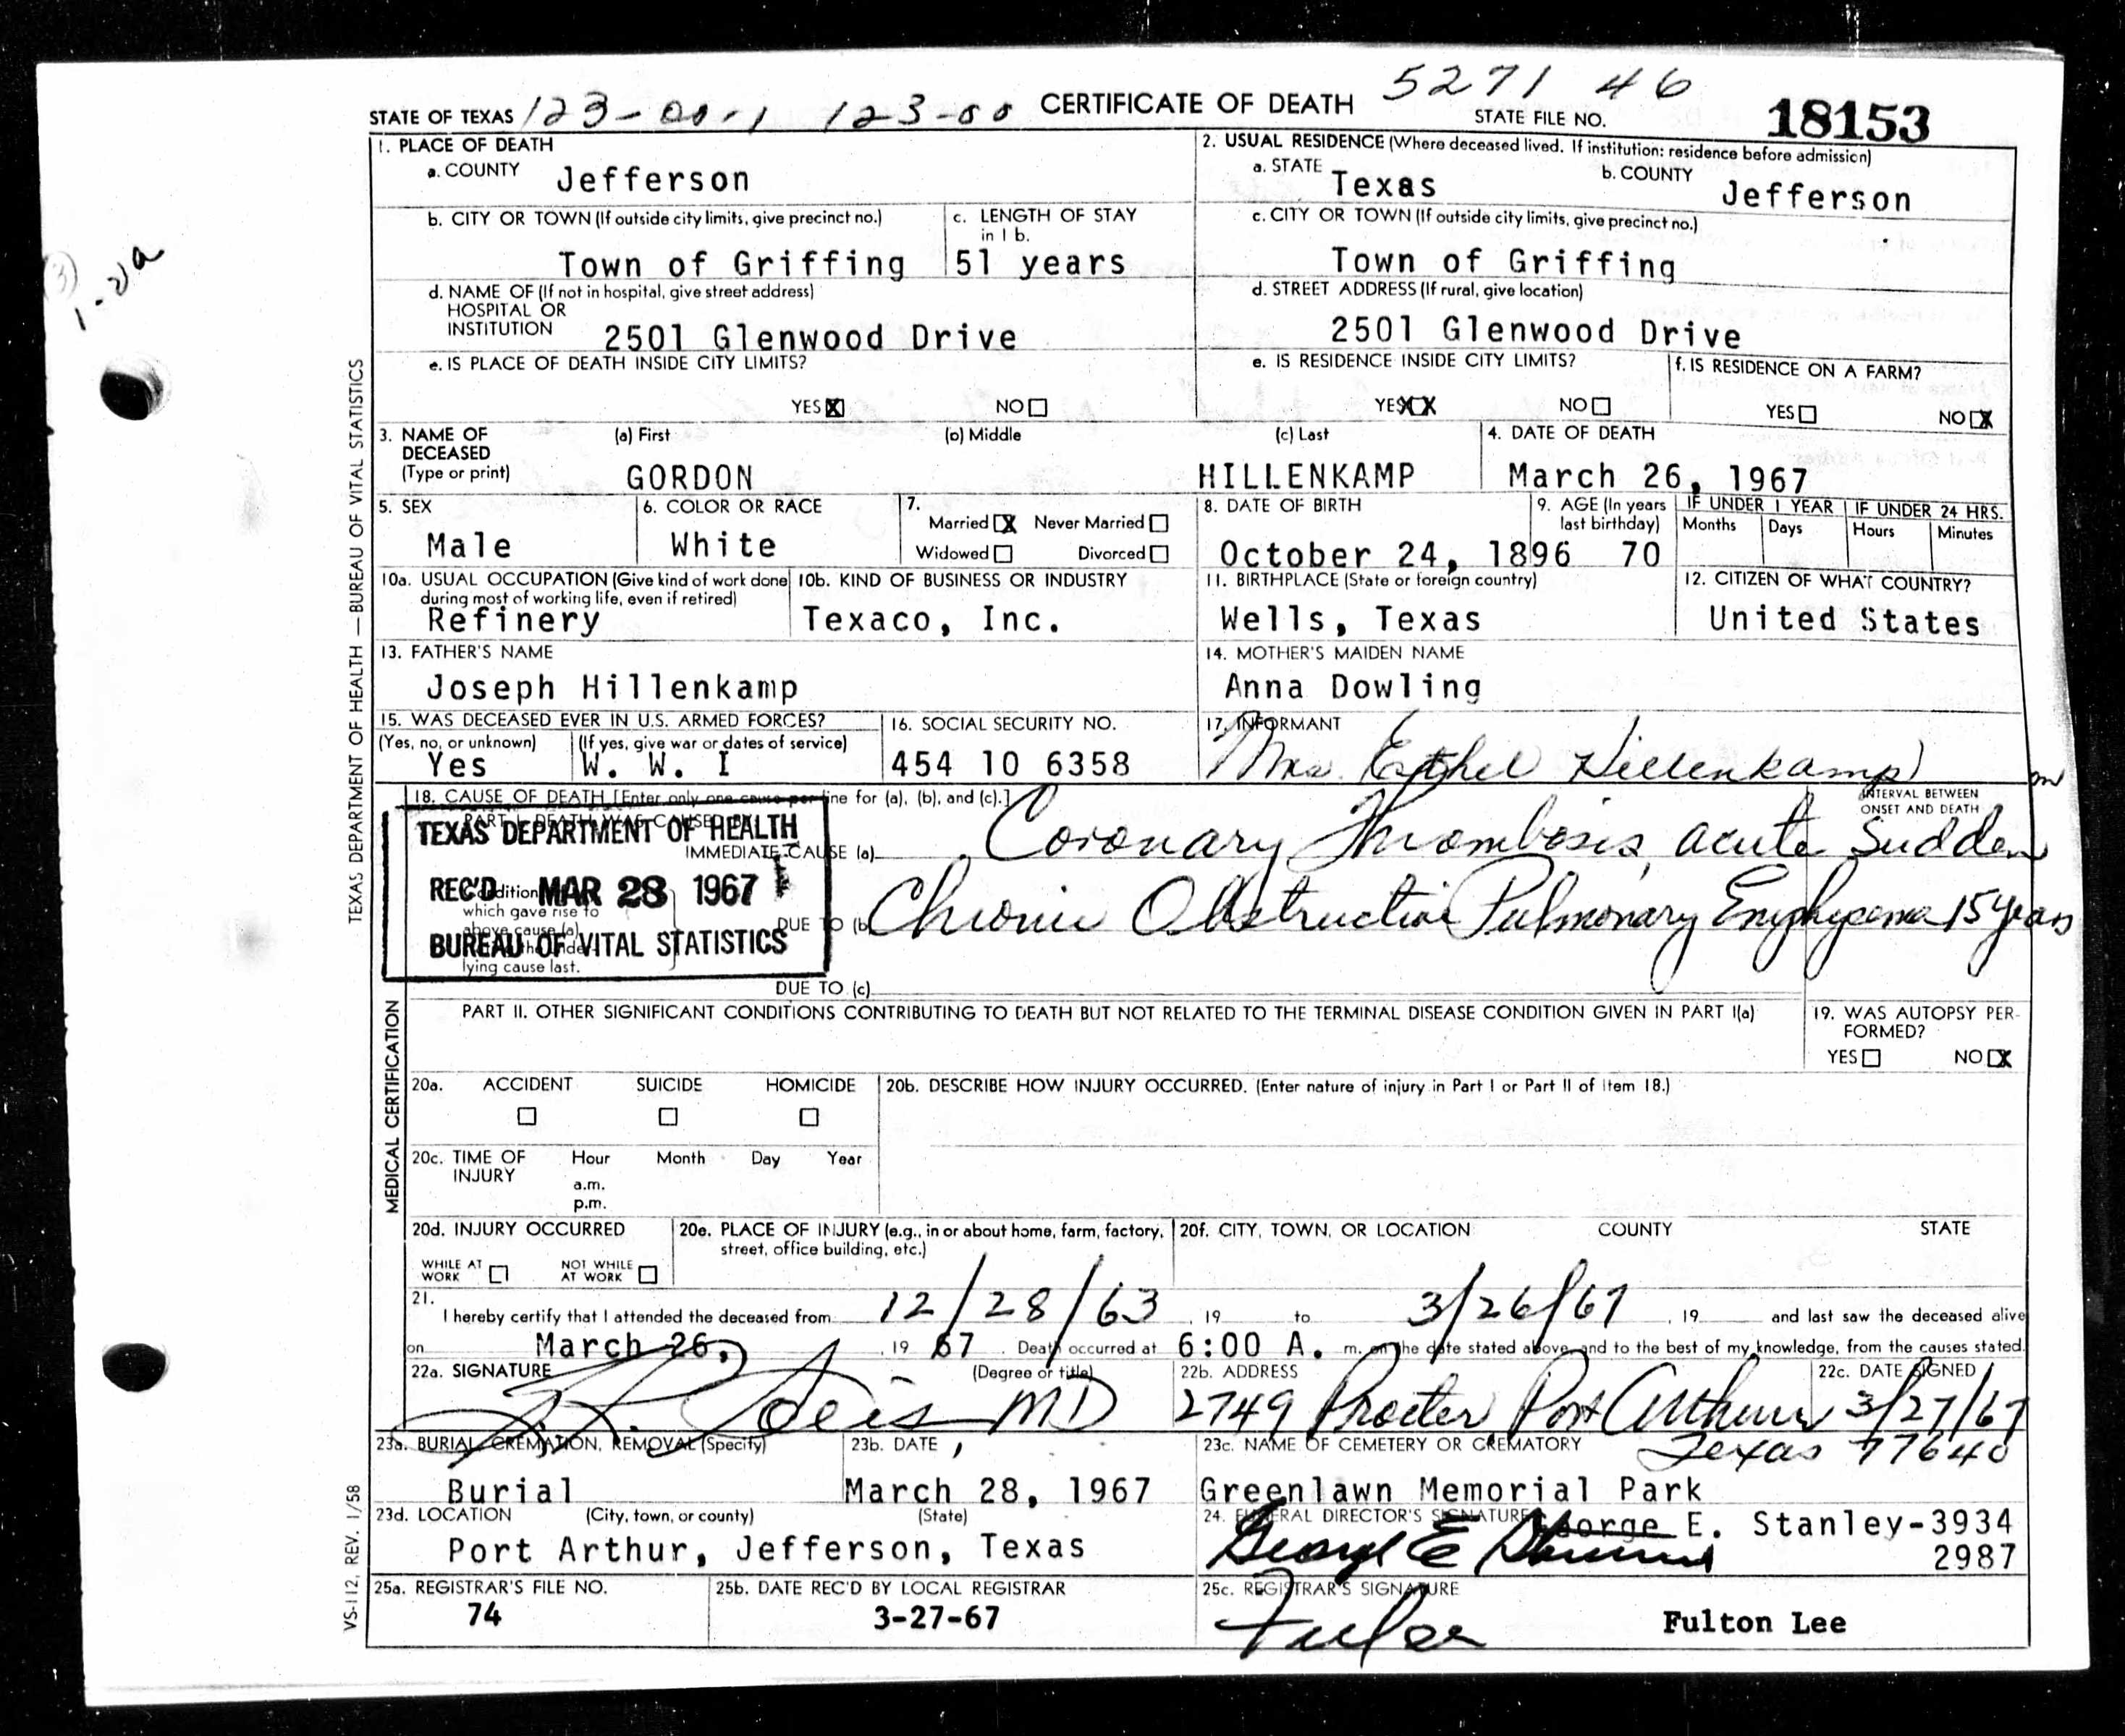 5271 46
STATE OF TEXAS 123-00-1 123-00 CERTIFICATE OF DEATH STATE FILE NO. 18153
1. PLACE OF DEATH
a. COUNTY Jefferson
b. CITY OR TOWN (If outside city limits, give precinct no.) c. LENGTH OF STAY in 1 b.
Town of Griffing 51 years
d. NAME OF (If not in hospital, give street address)
HOSPITAL OR
INSTITUTION 2501 Glenwood Drive
e. IS PLACE OF DEATH INSIDE CITY LIMITS?
YES X NO
2. USUAL RESIDENCE (Where deceased lived. If institution: residence before admission)
a. STATE Texas b. COUNTY Jefferson
c. CITY OR TOWN (If outside city limits, give precinct no.)
Town of Griffing
d. STREET ADDRESS (If rural, give location)
2501 Glenwood Drive
e. IS RESIDENCE INSIDE CITY LIMITS? f. IS RESIDENCE ON A FARM?
YES XX NO YES NO X
3. NAME OF DECEASED (Type or print) (a) First (b) Middle (c) Last 4. DATE OF DEATH
GORDON HILLENKAMP March 26, 1967
5. SEX 6. COLOR OR RACE 7. Married X Never Married Widowed Divorced 8. DATE OF BIRTH 9. AGE (In years last birthday) IF UNDER 1 YEAR Months Days IF UNDER 24 HRS. Hours Minutes
Male White October 24, 1896 70
10a. USUAL OCCUPATION (Give kind of work done during most of working life, even if retired) 10b. KIND OF BUSINESS OR INDUSTRY 11. BIRTHPLACE (State or foreign country) 12. CITIZEN OF WHAT COUNTRY?
Refinery Texaco, Inc. Wells, Texas United States
13. FATHER'S NAME 14. MOTHER'S MAIDEN NAME
Joseph Hillenkamp Anna Dowling
15. WAS DECEASED EVER IN U.S. ARMED FORCES? 16. SOCIAL SECURITY NO. 17. INFORMANT
(Yes, no, or unknown) (If yes, give war or dates of service)
Yes W. W. I 454 10 6358 Mrs. Esthel Hillenkamp
18. CAUSE OF DEATH [Enter only one cause per line for (a), (b), and (c).] INTERVAL BETWEEN ONSET AND DEATH
PART I. DEATH WAS CAUSED BY:
IMMEDIATE CAUSE (a) Coronary Thrombosis, acute Sudden
TEXAS DEPARTMENT OF HEALTH
REC'D MAR 28 1967
BUREAU OF VITAL STATISTICS
Conditions
which gave rise to
above cause (a)
lying cause last.
DUE TO (b) Chronic Obstructive Pulmonary Emphysema 15 years
DUE TO (c)
PART II. OTHER SIGNIFICANT CONDITIONS CONTRIBUTING TO DEATH BUT NOT RELATED TO THE TERMINAL DISEASE CONDITION GIVEN IN PART I(a)
19. WAS AUTOPSY PERFORMED?
YES NO X
20a. ACCIDENT SUICIDE HOMICIDE 20b. DESCRIBE HOW INJURY OCCURRED. (Enter nature of injury in Part I or Part II of item 18.)
20c. TIME OF INJURY Hour Month Day Year
a.m.
p.m.
20d. INJURY OCCURRED 20e. PLACE OF INJURY (e.g., in or about home, farm, factory, street, office building, etc.) 20f. CITY, TOWN, OR LOCATION COUNTY STATE
WHILE AT WORK NOT WHILE AT WORK
21. I hereby certify that I attended the deceased from 12/28/63, 19 to 3/26/67, 19 and last saw the deceased alive
on March 26, 19 67. Death occurred at 6:00 A. m. on the date stated above, and to the best of my knowledge, from the causes stated.
22a. SIGNATURE (Degree or title) 22b. ADDRESS 22c. DATE SIGNED
MD 2749 Procter Port Arthur 3/27/67
Texas 77640
23a. BURIAL, CREMATION, REMOVAL (Specify) 23b. DATE 23c. NAME OF CEMETERY OR CREMATORY
Burial March 28, 1967 Greenlawn Memorial Park
23d. LOCATION (City, town, or county) (State) 24. FUNERAL DIRECTOR'S SIGNATURE George E. Stanley-3934
Port Arthur, Jefferson, Texas 2987
25a. REGISTRAR'S FILE NO. 25b. DATE REC'D BY LOCAL REGISTRAR 25c. REGISTRAR'S SIGNATURE
74 3-27-67 Fulton Lee
TEXAS DEPARTMENT OF HEALTH — BUREAU OF VITAL STATISTICS
MEDICAL CERTIFICATION
VS-112, REV. 1/58